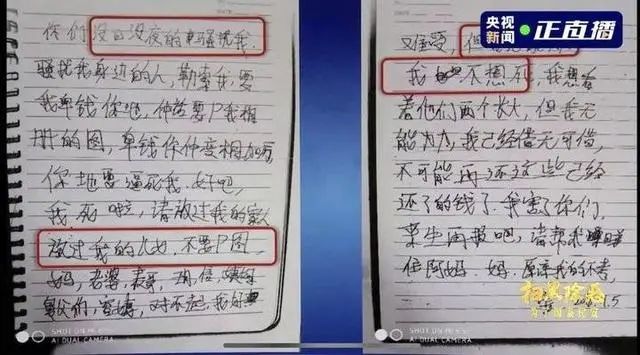 央视新闻 正直播
你们没日没夜的骚扰我，
骚扰我身边的人，勒索我，要
我卑钱你地，仲话要P我相
册的图，卑钱你仲变相加
你地要逼死我，好吧，
我死啦，请放过我的家
放过我的儿女，不要P图，
妈，老婆，表哥，
对不起，我好
难受，但
我 不想死，我想看
着他们两个长大，但我无
能为力，我已经借无可借，
不可能再还这些已经
还了的钱了，我害了你们，
来生再报吧，请帮我
住阿妈，妈，原谅我的不孝，
扫黑除恶
为了国泰民安
SHOT ON
AI DUAL CAMERA
SHOT ON
AI DUAL CAMERA